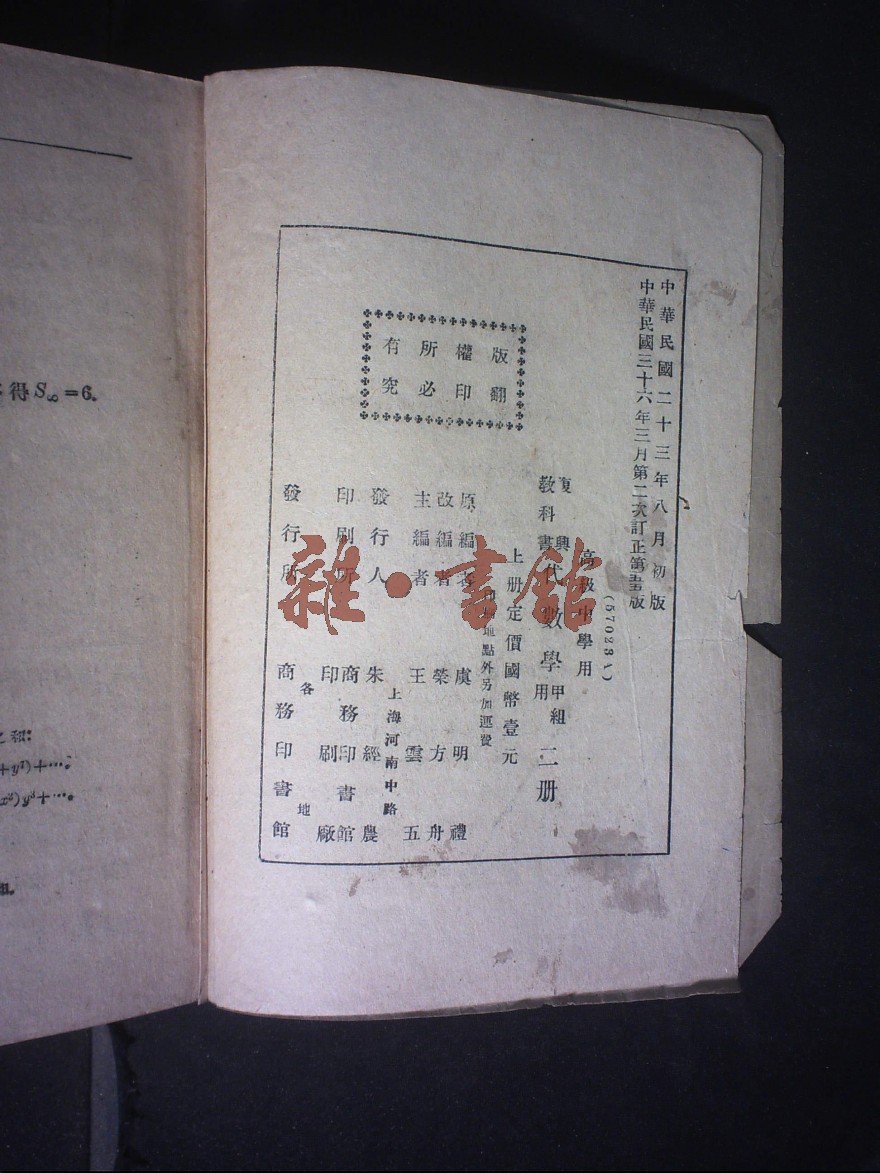 中華民國二十三年八月初版
中華民國三十六年三月第二次訂正第版
(57023
高級中學用
復興
教科書
代數學
甲組
用
二册
上册定價國幣壹元
印刷地點外另加運費
原編者 虞明禮
改編者 榮方舟
主編者 王雲五
上海河南中路
發行人 朱經農
印刷所 商務印書館
印刷廠
發行所 各地
商務印書館
版權所有
翻印必究
雜·書館
得 S∞ = 6。
之和: